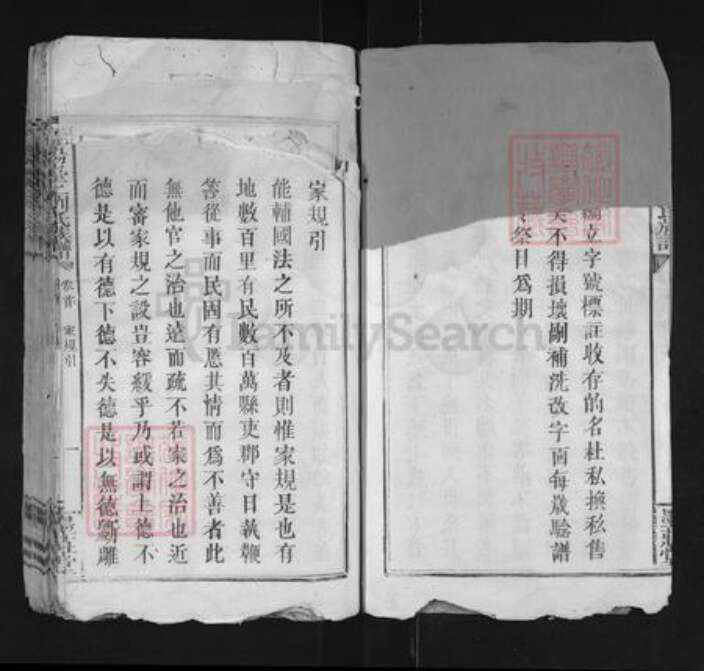 獨立字號標註收存的名杜私換私售
失不得損壞剮補洗改字面每歲驗譜
祭日為期
家規引
能輔國法之所不及者則惟家規是也有
地數百里有民數百萬縣吏郡守日執鞭
笞從事而民固有慝其情而為不善者此
無他官之治也遠而疏不若家之治也近
而審家規之設豈容緩乎乃或謂上德不
德是以有德下德不失德是以無德斵雕
卷首 家規引
FamilySearch